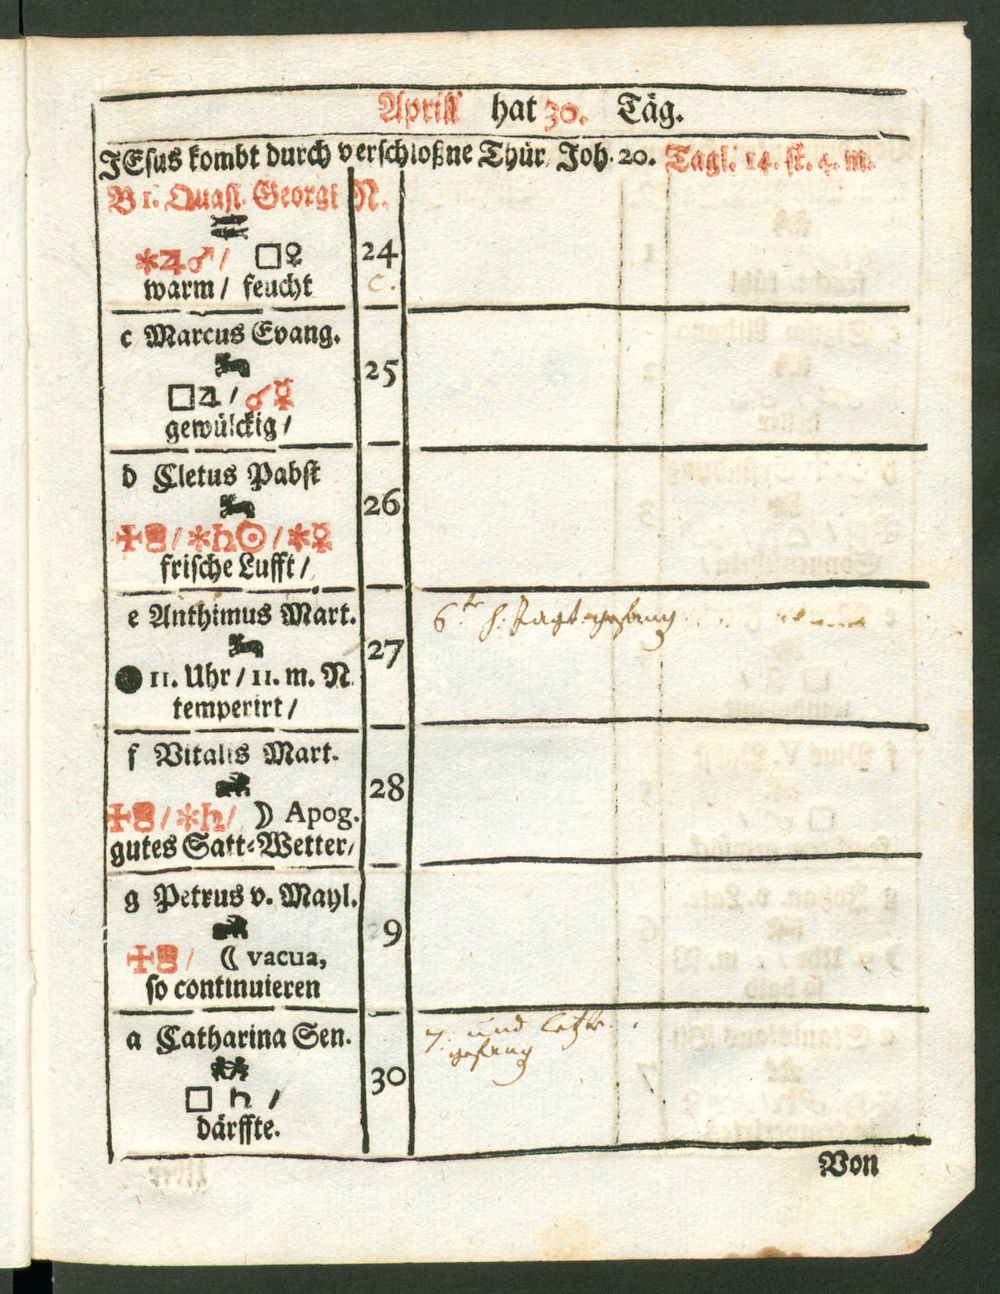 Aprill hat 30. Täg.
JEsus kombt durch verschloßne Thür, Joh. 20. Tagl. 14. st. 4. m.
B 1. Quas. Georgi N.
♓
✱♃♂/ □♀ 24
warm / feucht c.
c Marcus Evang.
□♃ / ☌☿ 25
gewülckig /
d Cletus Pabst
26
/ ✱♄☉ / ✱☿
frische Lufft /
e Anthimus Mart. 6.
27
● 11. Uhr / 11. m. N.
temperirt /
f Vitalis Mart.
28
/ ✱♄ / ☽ Apog.
gutes Satt-Wetter /
g Petrus v. Mayl.
9
/ ☾ vacua,
so continuieren
a Catharina Sen. 7. und letzte
gesang
□ ♄ / 30
därffte.
Von